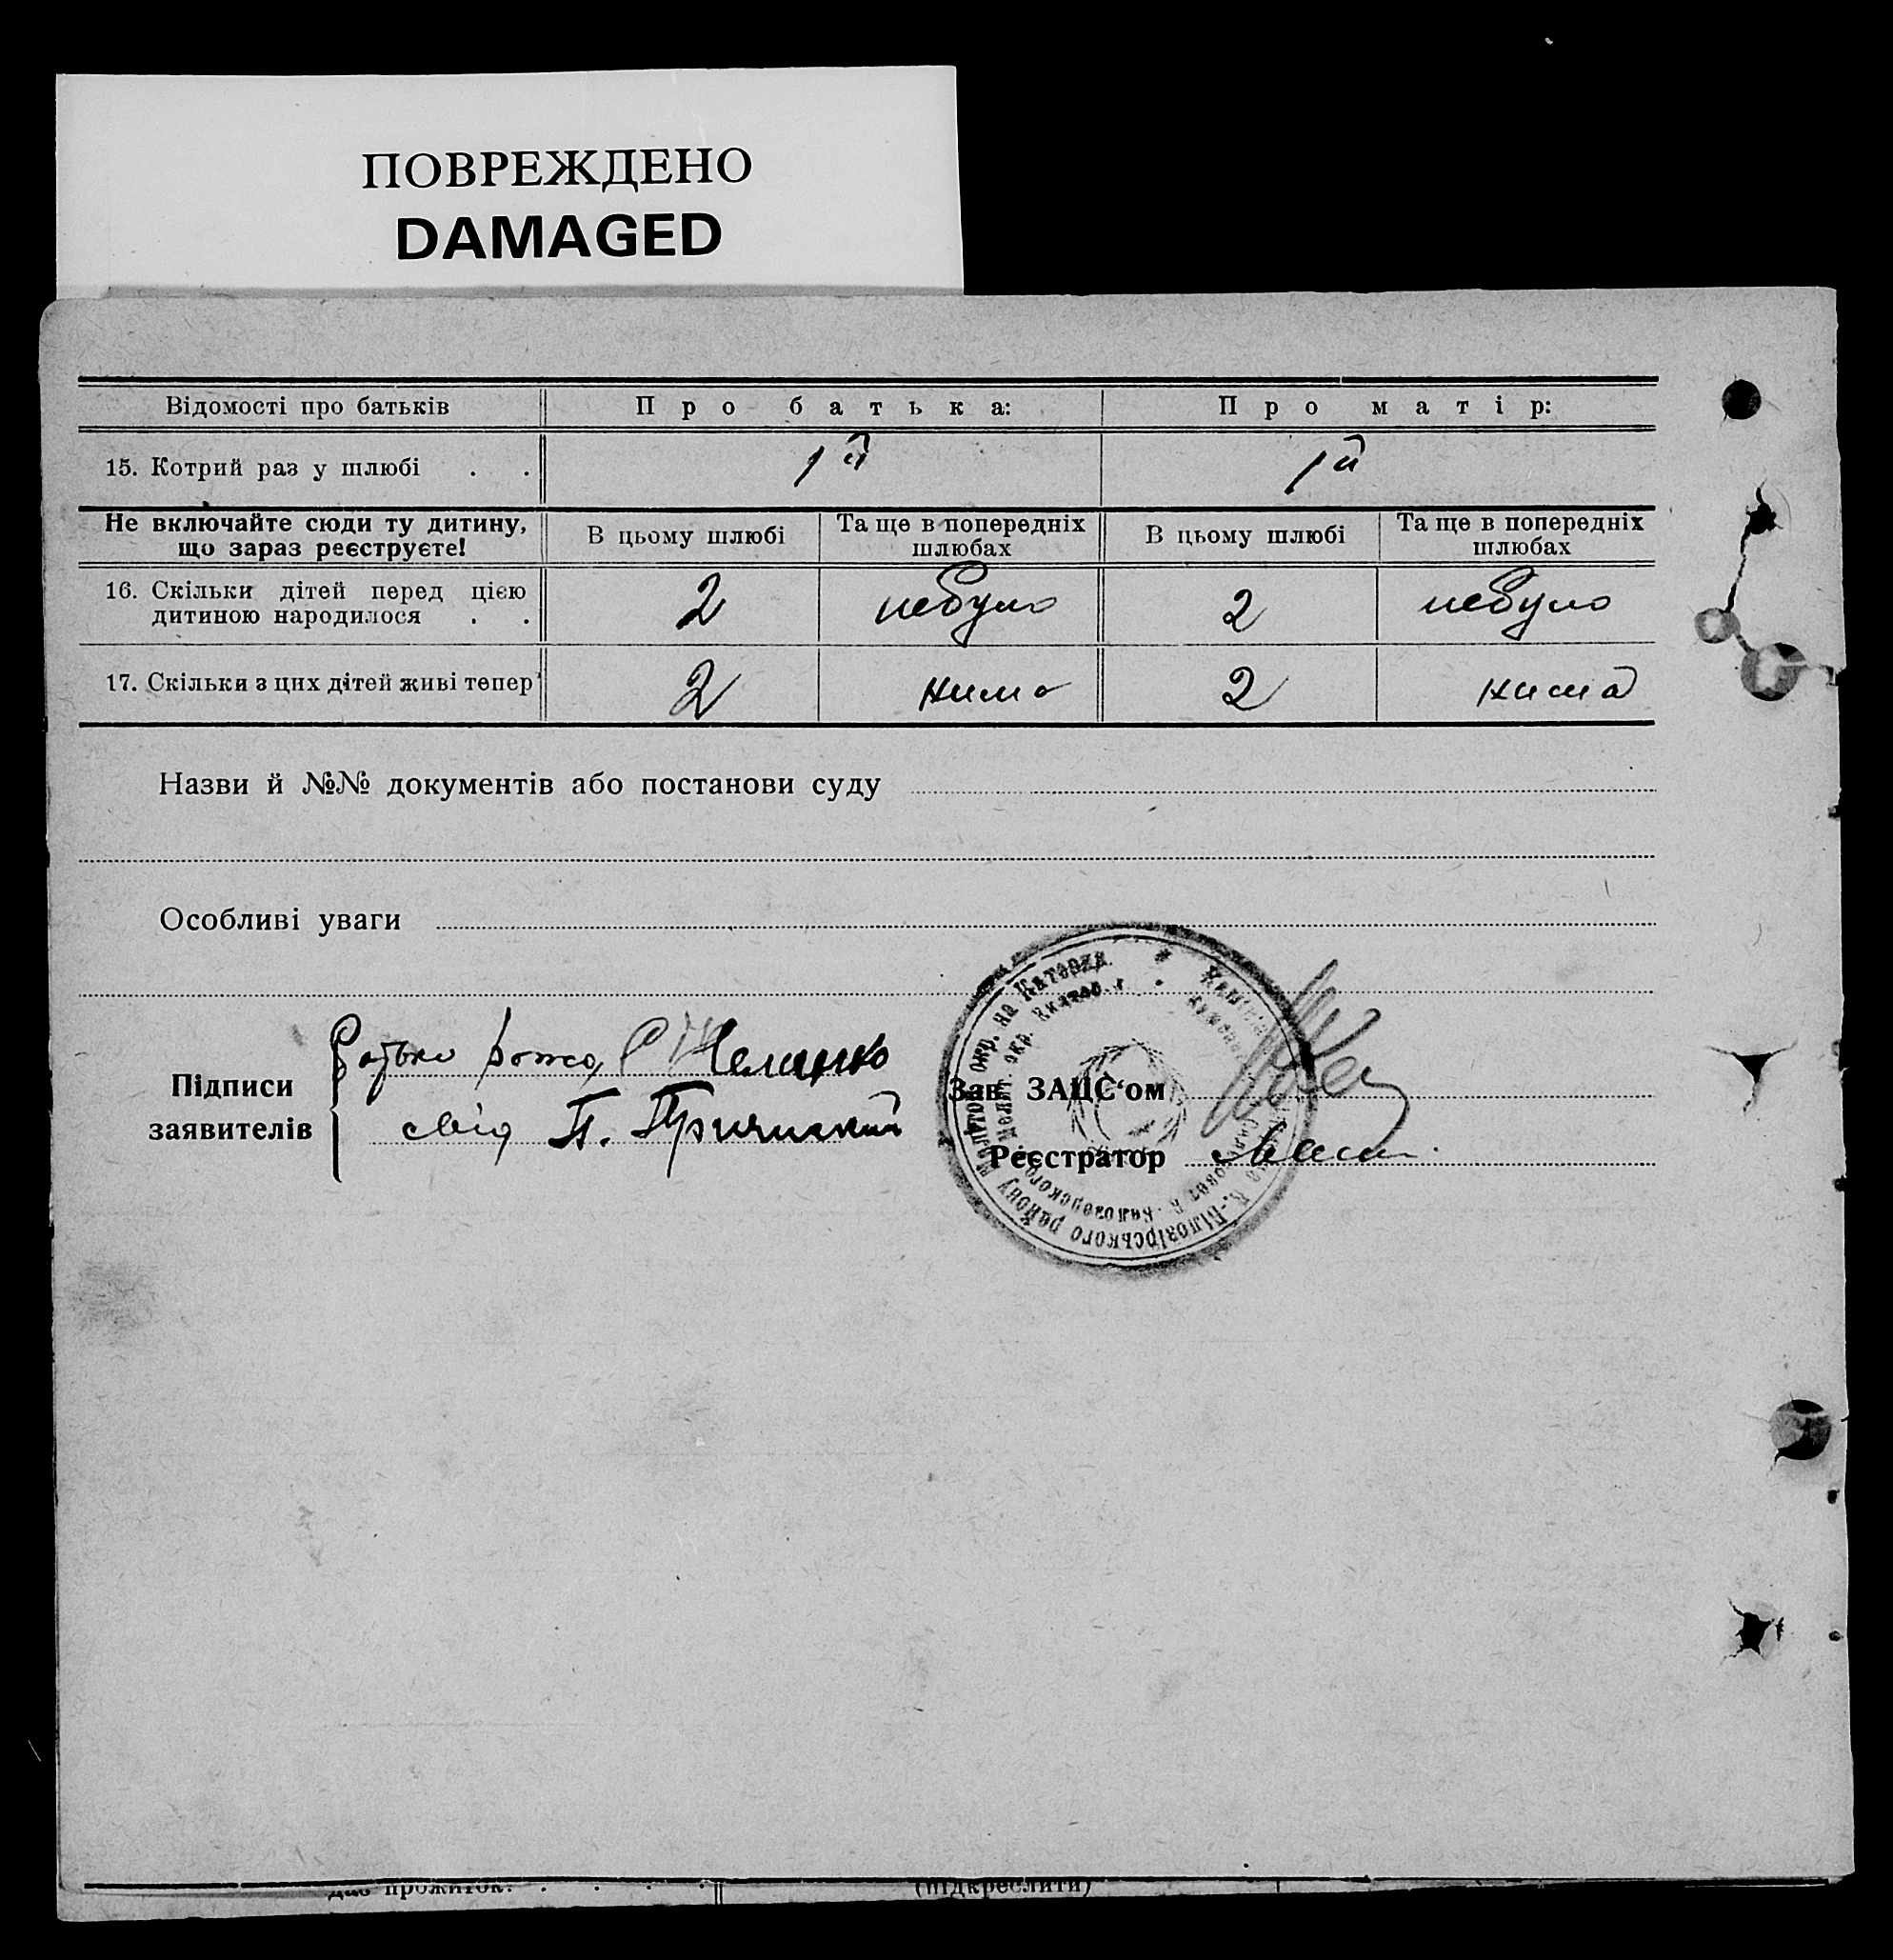 ПОВРЕЖДЕНО
DAMAGED
Відомості про батьків Про батька: Про матір:
15. Котрий раз у шлюбі . . 1й 1й
Не включайте сюди ту дитину, що зараз реєструєте! В цьому шлюбі Та ще в попередніх шлюбах В цьому шлюбі Та ще в попередніх шлюбах
16. Скільки дітей перед цією
дитиною народилося . . 2 небуло 2 небуло
17. Скільки з цих дітей живі тепер 2 нима 2 нима
Назви й №№ документів або постанови суду
Особливі уваги
Підписи
заявителів
Батько
свід П.
Зав. ЗАЦС‘ом
Реєстратор
К.-Білозірського району окр. на Каторин.
прожиток.
(підкреслити)